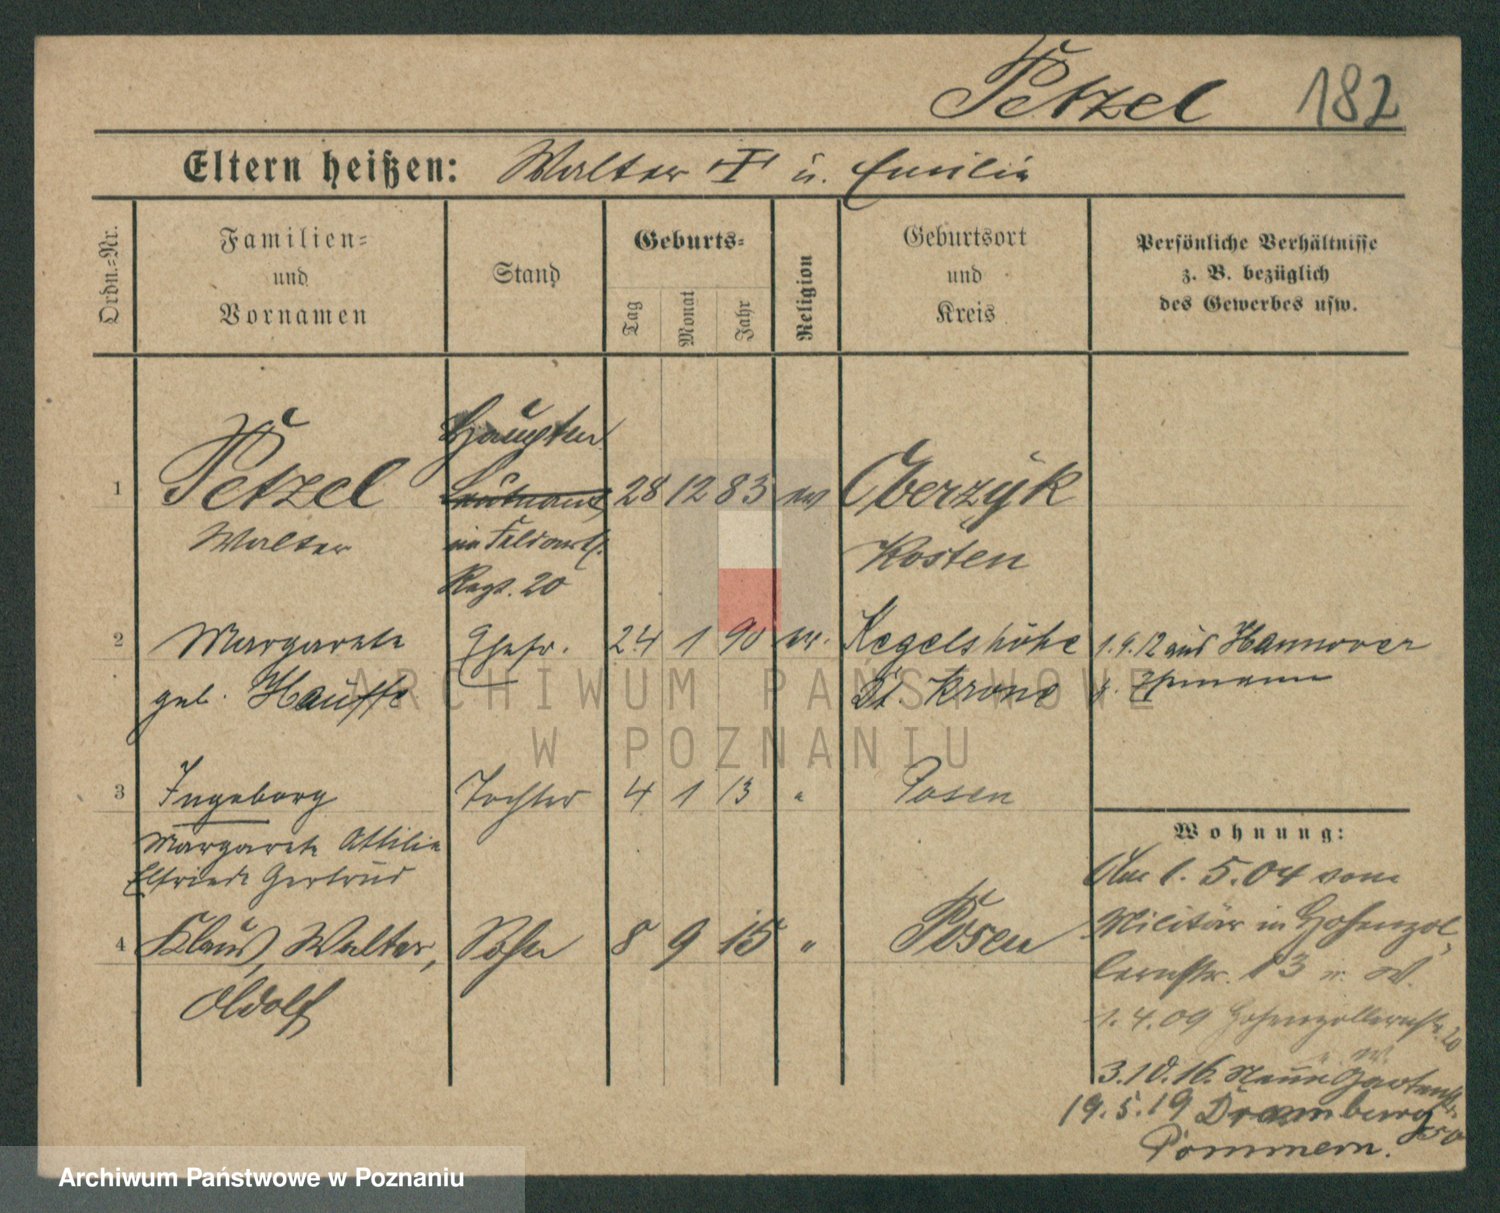 Petzel 182
Eltern heißen: Walter † u. Emilie
Ordn.-Nr.
Familien-
und
Vornamen
Stand
Geburts-
Tag
Monat
Jahr
Religion
Geburtsort
und
Kreis
Persönliche Verhältnisse
z. B. bezüglich
des Gewerbes usw.
Hauptm
1 Petzel Leutnant 28 12 83 ev Oberzyk
Walter im Feldart. Kosten
Regt. 20
2 Margarete Ehefr. 24 1 90 ev. Kegelshöhe 1.9.12 aus Hannover
geb. Hauffe Dt. Krone z. Ehemann
3 Ingeborg Tochter 4 1 13 " Posen
Margarete Ottilie
Elfriede Gertrud
4 Klaus, Walter, Sohn 8 9 15 " Posen
Adolf
Wohnung:
Am 1. 5. 04 vom
Militär in Hohenzol-
lernstr. 13 u. W.
1. 4. 09 Hohenzollernstr. 20
u. W.
3.10.16. Neue Gartenstr.
19.5.19 Dramburg
Pommern.
ARCHIWUM PAŃSTWOWE
W POZNANIU
Archiwum Państwowe w Poznaniu